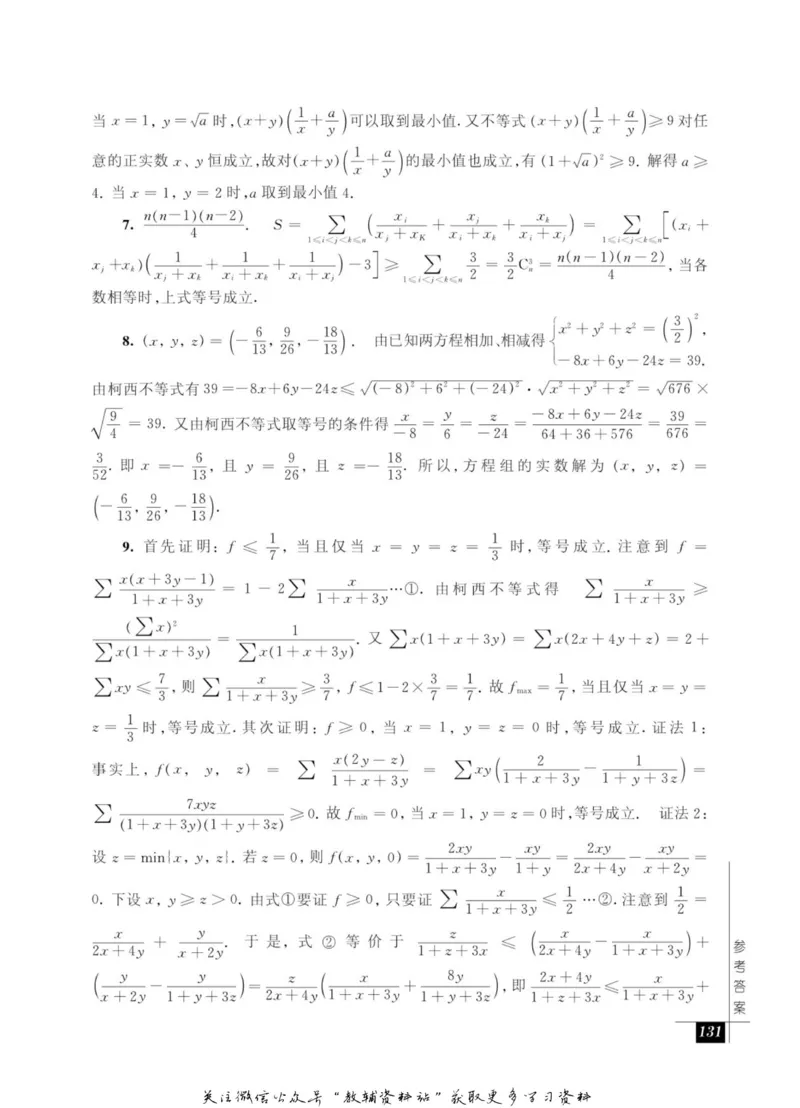 当 x=1, y=√a 时,(x+y)(1/x+a/y)可以取到最小值. 又不等式 (x+y)(1/x+a/y)≥9 对任
意的正实数 x、y 恒成立,故对(x+y)(1/x+a/y)的最小值也成立,有 (1+√a)²≥9. 解得 a≥
4. 当 x=1, y=2 时,a 取到最小值 4.
7. n(n-1)(n-2)/4. S=∑_{1≤i<j<k≤n}(x_i/(x_j+x_K)+x_j/(x_i+x_k)+x_k/(x_i+x_j))=∑_{1≤i<j<k≤n}[(x_i+
x_j+x_k)(1/(x_j+x_k)+1/(x_i+x_k)+1/(x_i+x_j))-3]≥∑_{1≤i<j<k≤n}3/2=3/2C_n^3=n(n-1)(n-2)/4, 当各
数相等时,上式等号成立.
8. (x, y, z)=(-6/13, 9/26, -18/13). 由已知两方程相加、相减得{x²+y²+z²=(3/2)², -8x+6y-24z=39.
由柯西不等式有 39=-8x+6y-24z≤√((-8)²+6²+(-24)²)·√(x²+y²+z²)=√676×
√(9/4)=39. 又由柯西不等式取等号的条件得 x/-8=y/6=z/-24=(-8x+6y-24z)/(64+36+576)=39/676=
3/52. 即 x=-6/13, 且 y=9/26, 且 z=-18/13. 所以,方程组的实数解为 (x, y, z)=
(-6/13, 9/26, -18/13).
9. 首先证明: f≤1/7, 当且仅当 x=y=z=1/3 时,等号成立. 注意到 f=
∑x(x+3y-1)/(1+x+3y)=1-2∑x/(1+x+3y)…①. 由柯西不等式得 ∑x/(1+x+3y)≥
(∑x)²/∑x(1+x+3y)=1/∑x(1+x+3y). 又∑x(1+x+3y)=∑x(2x+4y+z)=2+
∑xy≤7/3, 则∑x/(1+x+3y)≥3/7, f≤1-2×3/7=1/7. 故 f_max=1/7, 当且仅当 x=y=
z=1/3 时,等号成立. 其次证明: f≥0, 当 x=1, y=z=0 时,等号成立. 证法 1:
事实上, f(x, y, z)=∑x(2y-z)/(1+x+3y)=∑xy(2/(1+x+3y)-1/(1+y+3z))=
∑7xyz/((1+x+3y)(1+y+3z))≥0. 故 f_min=0, 当 x=1, y=z=0 时,等号成立. 证法 2:
设 z=min{x, y, z}. 若 z=0, 则 f(x, y, 0)=2xy/(1+x+3y)-xy/(1+y)=2xy/(2x+4y)-xy/(x+2y)=
0. 下设 x, y≥z>0. 由式①要证 f≥0, 只要证∑x/(1+x+3y)≤1/2…②. 注意到 1/2=
x/(2x+4y)+y/(x+2y). 于是, 式②等价于 z/(1+z+3x)≤(x/(2x+4y)-x/(1+x+3y))+
(y/(x+2y)-y/(1+y+3z))=z/(2x+4y)(x/(1+x+3y)+8y/(1+y+3z)), 即 (2x+4y)/(1+z+3x)≤x/(1+x+3y)+
参考答案
131
关注微信公众号“教辅资料站”获取更多学习资料